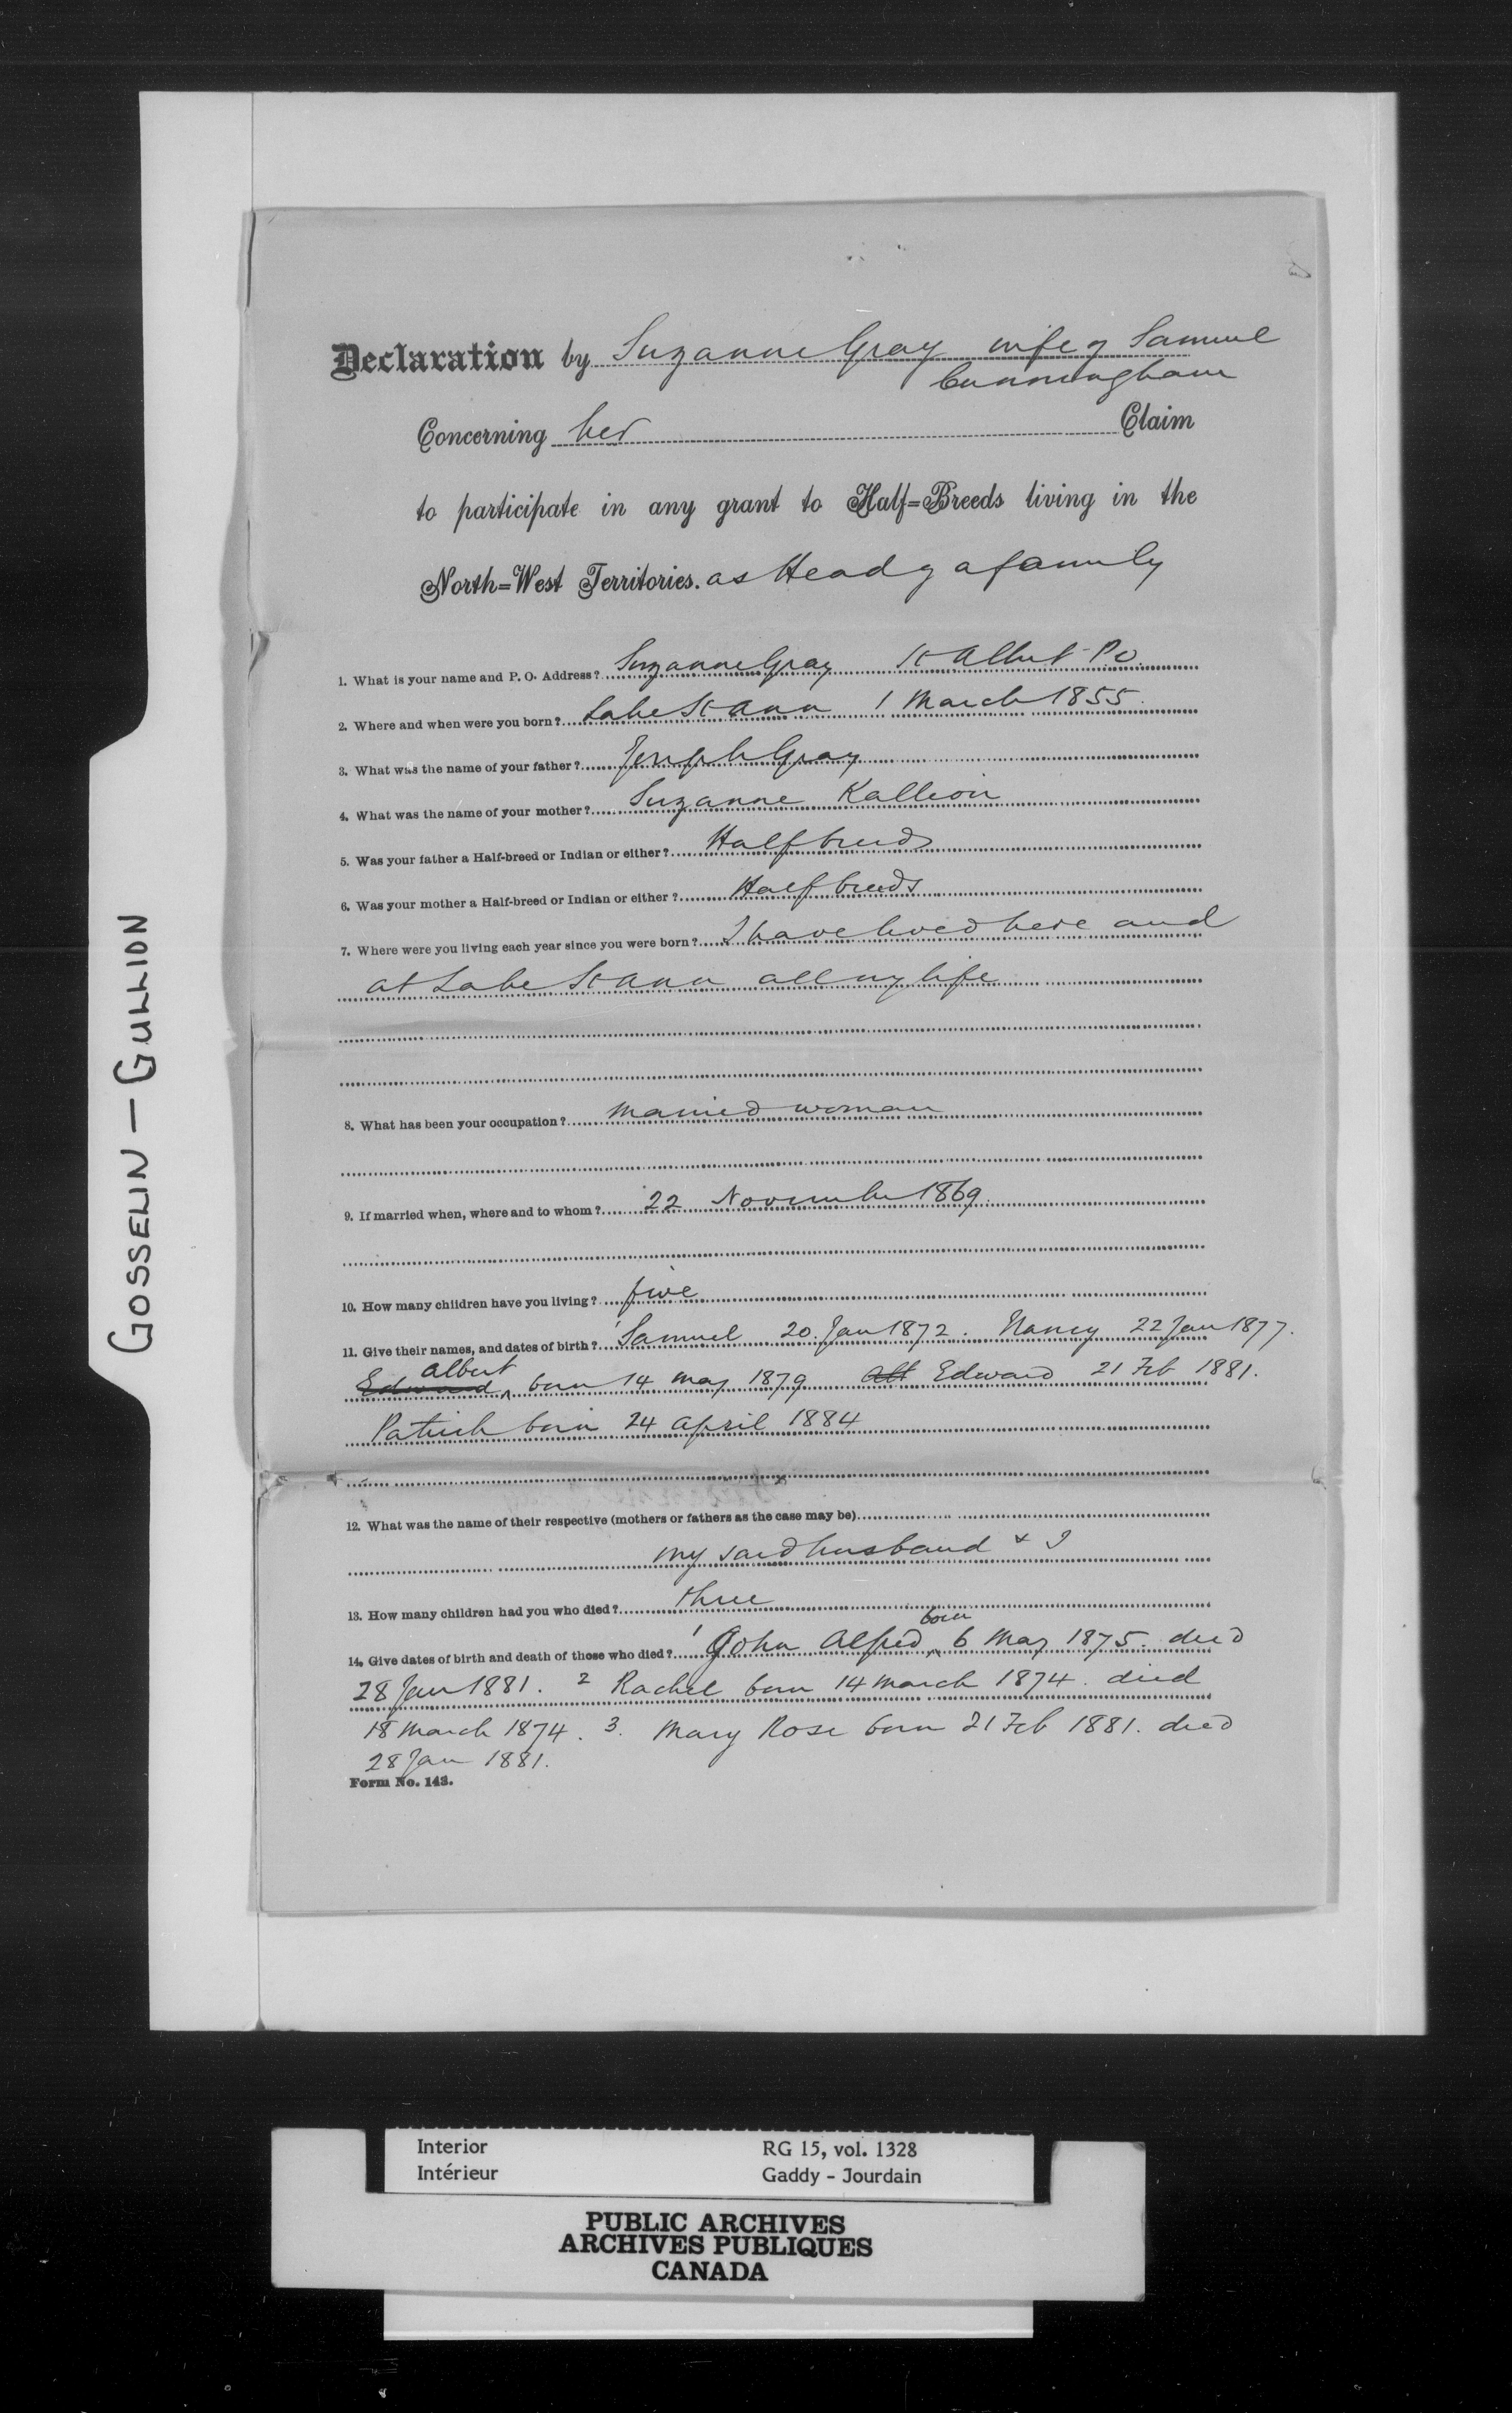 Declaration by Suzanne Gray wife of Samuel
Cunningham
Concerning her Claim
to participate in any grant to Half=Breeds living in the
North=West Territories. as Head of a family
1. What is your name and P. O. Address? Suzanne Gray St Albert P.O.
2. Where and when were you born? Lake St Ann 1 March 1855.
3. What was the name of your father? Joseph Gray
4. What was the name of your mother? Suzanne Kalleoin
5. Was your father a Half-breed or Indian or either? Half breed
6. Was your mother a Half-breed or Indian or either? Half breeds
7. Where were you living each year since you were born? I have lived here and
at Lake St Ann all my life
8. What has been your occupation? married woman
9. If married when, where and to whom? 22 November 1869.
10. How many children have you living? five
11. Give their names, and dates of birth? 1 Samuel 20. Jan 1872. Nancy 22 Jan 1877.
albert
Edward ^ born 14 may 1879 Alt Edward 21 Feb 1881.
Patrick born 24 april 1884
12. What was the name of their respective (mothers or fathers as the case may be)
my said husband & I
13. How many children had you who died? three
born
14. Give dates of birth and death of those who died? 1 John Alfred ^ 6 May 1875. died
28 Jan 1881. 2 Rachel born 14 march 1874. died
18 march 1874. 3. Mary Rose born 21 Feb 1881. died
28 Jan 1881.
Form No. 143.
GOSSELIN — GULLION
Interior RG 15, vol. 1328
Intérieur Gaddy - Jourdain
PUBLIC ARCHIVES
ARCHIVES PUBLIQUES
CANADA